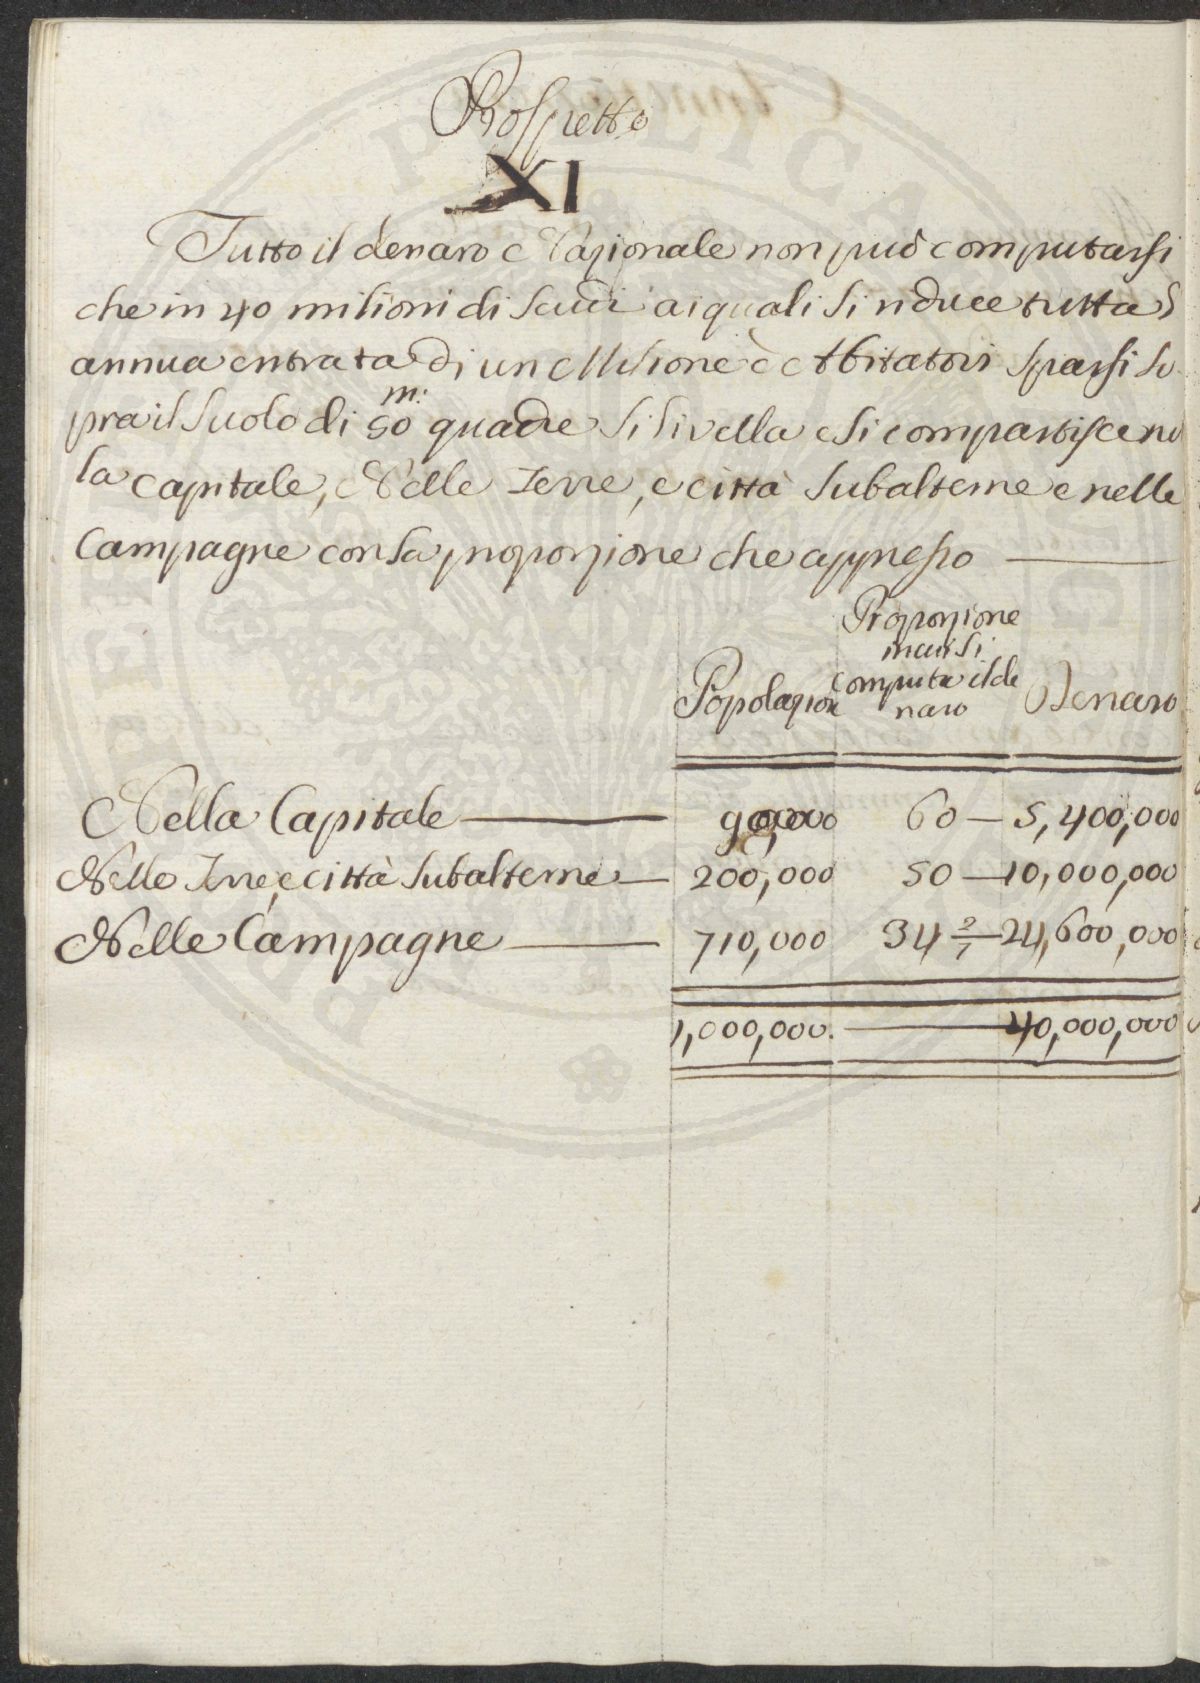 Prospetto
XI
Tutto il denaro Nazionale non può computarsi
che in 40 milioni di scudi ai quali si riduce tutta l'
annua entrata di un Milione d' Abitatori sparsi so
pra il suolo di 50 m: quadre si livella e si compartisce nel
la capitale, Nelle Terre, e città subalterne e nelle
Campagne con la proporzione che appresso
Popolazione Proporzione in cui si computa il denaro Denaro
Nella Capitale 90,000 60 5,400,000
Nelle Terre, e città subalterne 200,000 50 10,000,000
Nelle Campagne 710,000 34 2/7 24,600,000
1,000,000. 40,000,000